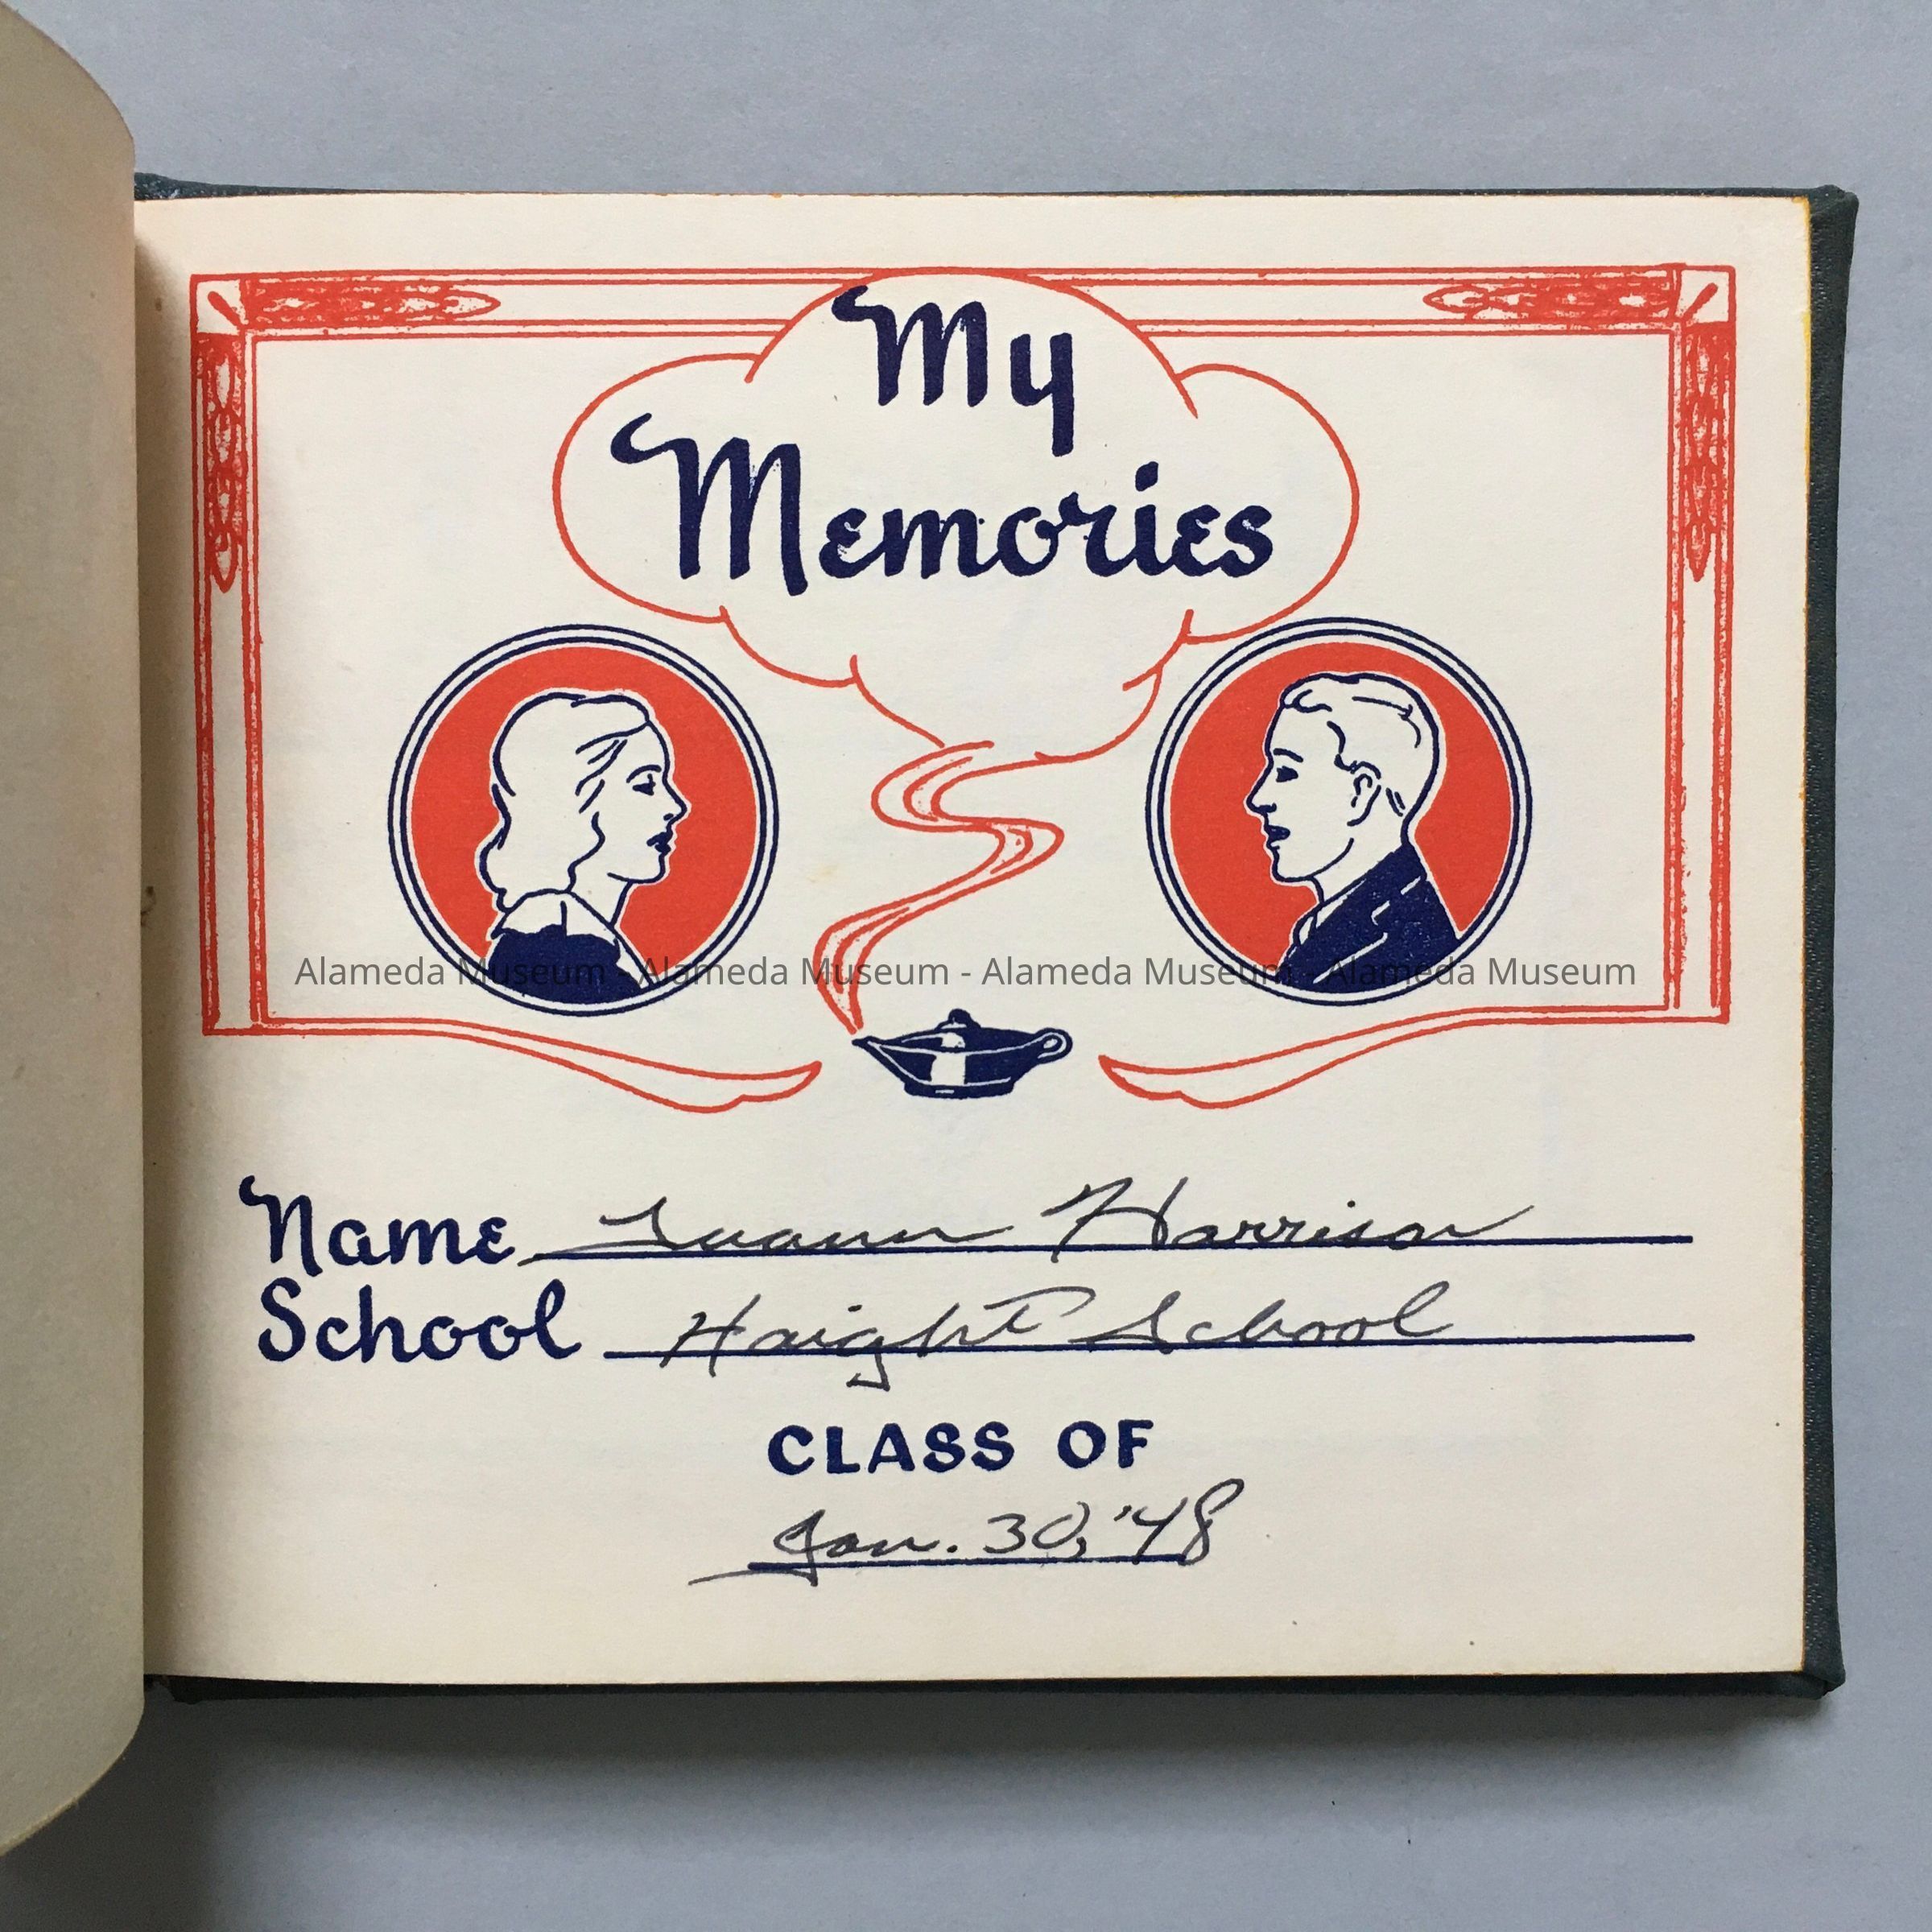 My
Memories
Alameda Museum - Alameda Museum - Alameda Museum - Alameda Museum
Name Luann Harrison
School Haight School
CLASS OF
Jan. 30, '48